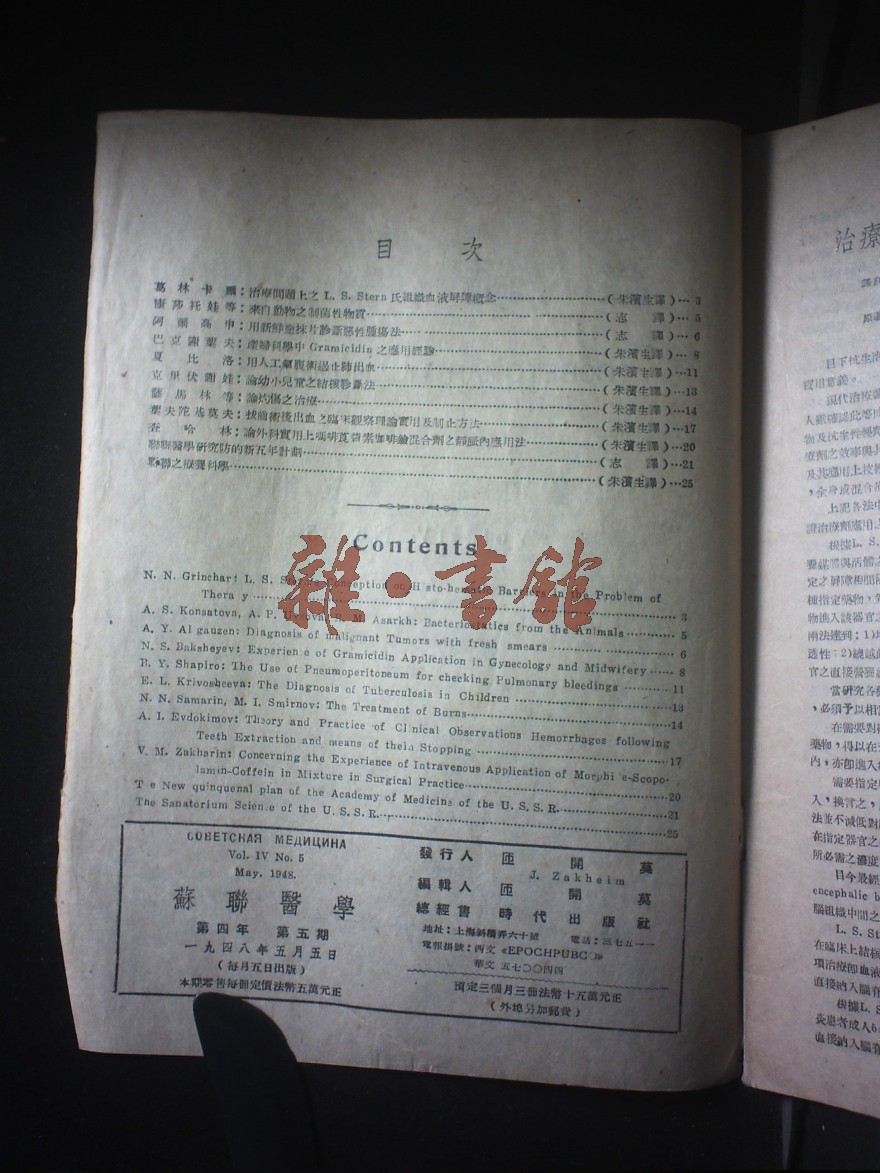 目 次
葛林卡爾：治療問題上之 L. S. Stern 氏組織血液屏障概念……（朱濱生譯）…3
康莎托娃等：來自動物之制菌性物質……（志 譯）…5
阿爾高申：用新鮮塗抹片診斷惡性腫瘍法……（志 譯）…6
巴克謝葉夫：產婦科學中 Gramicidin 之應用經驗……（朱濱生譯）…8
夏比洛：用人工氣腹術遏止肺出血……（朱濱生譯）…11
克里伏謝娃：論幼小兒童之結核診斷法……（朱濱生譯）…13
薩馬林等：論灼傷之治療……（朱濱生譯）…14
葉夫陀基莫夫：拔齒術後出血之臨床觀察理論實用及制止方法……（朱濱生譯）…17
哈林：論外科實用上嗎啡莨菪素咖啡鹼混合劑之靜脈內應用法……（朱濱生譯）…20
醫學研究防的新五年計劃……（志 譯）…21
聯之療養科學……（朱濱生譯）…25
Contents
N. N. Grinchar: L. S. Conception on H sto-hematic Barriers in the Problem of
Thera y ……3
A. S. Konsatova, A. P. M. Asarkh: Bacteriostatics from the Animals……5
A. Y. Al gauzen: Diagnosis of malignant Tumors with fresh smears ……6
N. S. Baksheyev: Experien e of Gramicidin Application in Gynecology and Midwifery……8
B. Y. Shapiro: The Use of Pneumoperitoneum for checking Pulmonary bleedings ……11
E. L. Krivosheeva: The Diagnosis of Tuberculosis in Children ……13
N. N. Samarin, M. I. Smirnov: The Treatment of Burns……14
A. I. Evdokimov: Theory and Practice of Clinical Observations Hemorrhages following
Teeth Extraction and means of thein Stopping ……17
V. M. Zakharin: Concerning the Experience of Intravenous Application of Morphi e-Scopo-
lamin-Coffein in Mixture in Surgical Practice……20
T e New quinquenal plan of the Academy of Medicins of the U. S. S. R.……21
The Sanatorium Scien.e of the U. S. S. R.……25
СОВЕТСКАЯ МЕДИЦИНА
Vol. IV No. 5
May, 1948.
蘇聯醫學
第四年 第五期
一九四八年五月五日
（每月五日出版）
本期零售每冊定價法幣五萬元正
發行人 匝開莫
J. Zakheim
編輯人 匝開莫
總經售 時代出版社
地址：上海斜橋弄六十號 電話：三七五一一
電報掛號：西文 «EPOCHPUBCO»
華文 五七〇〇四四
預定三個月三冊法幣十五萬元正
（外埠另加郵費）
雜·書館
治療
目下抗生
實用意義。
現代治療
人獻確認此等
物及抗生性觸
療劑之效率與
及其應用上技
，全身或混合
上記各法中
謂治療劑應用
根據L. S.
定之屏障相間隔
種指定藥物，
物進入該器官之
兩法達到：1)
透性：2)
官之直接營養
當研究各
，必須予以相當
在需要對
藥物，得以在
內，亦即進入
需要指定
入，換言之，
法並不減低對
在指定器官之
所必需之濃度
目今最經
encephalic b
腦組織中間之
L. S. St
在臨床上結核
項治療即血液
直接納入腦脊
根據L. S
炎患者成人6
直接納入腦脊